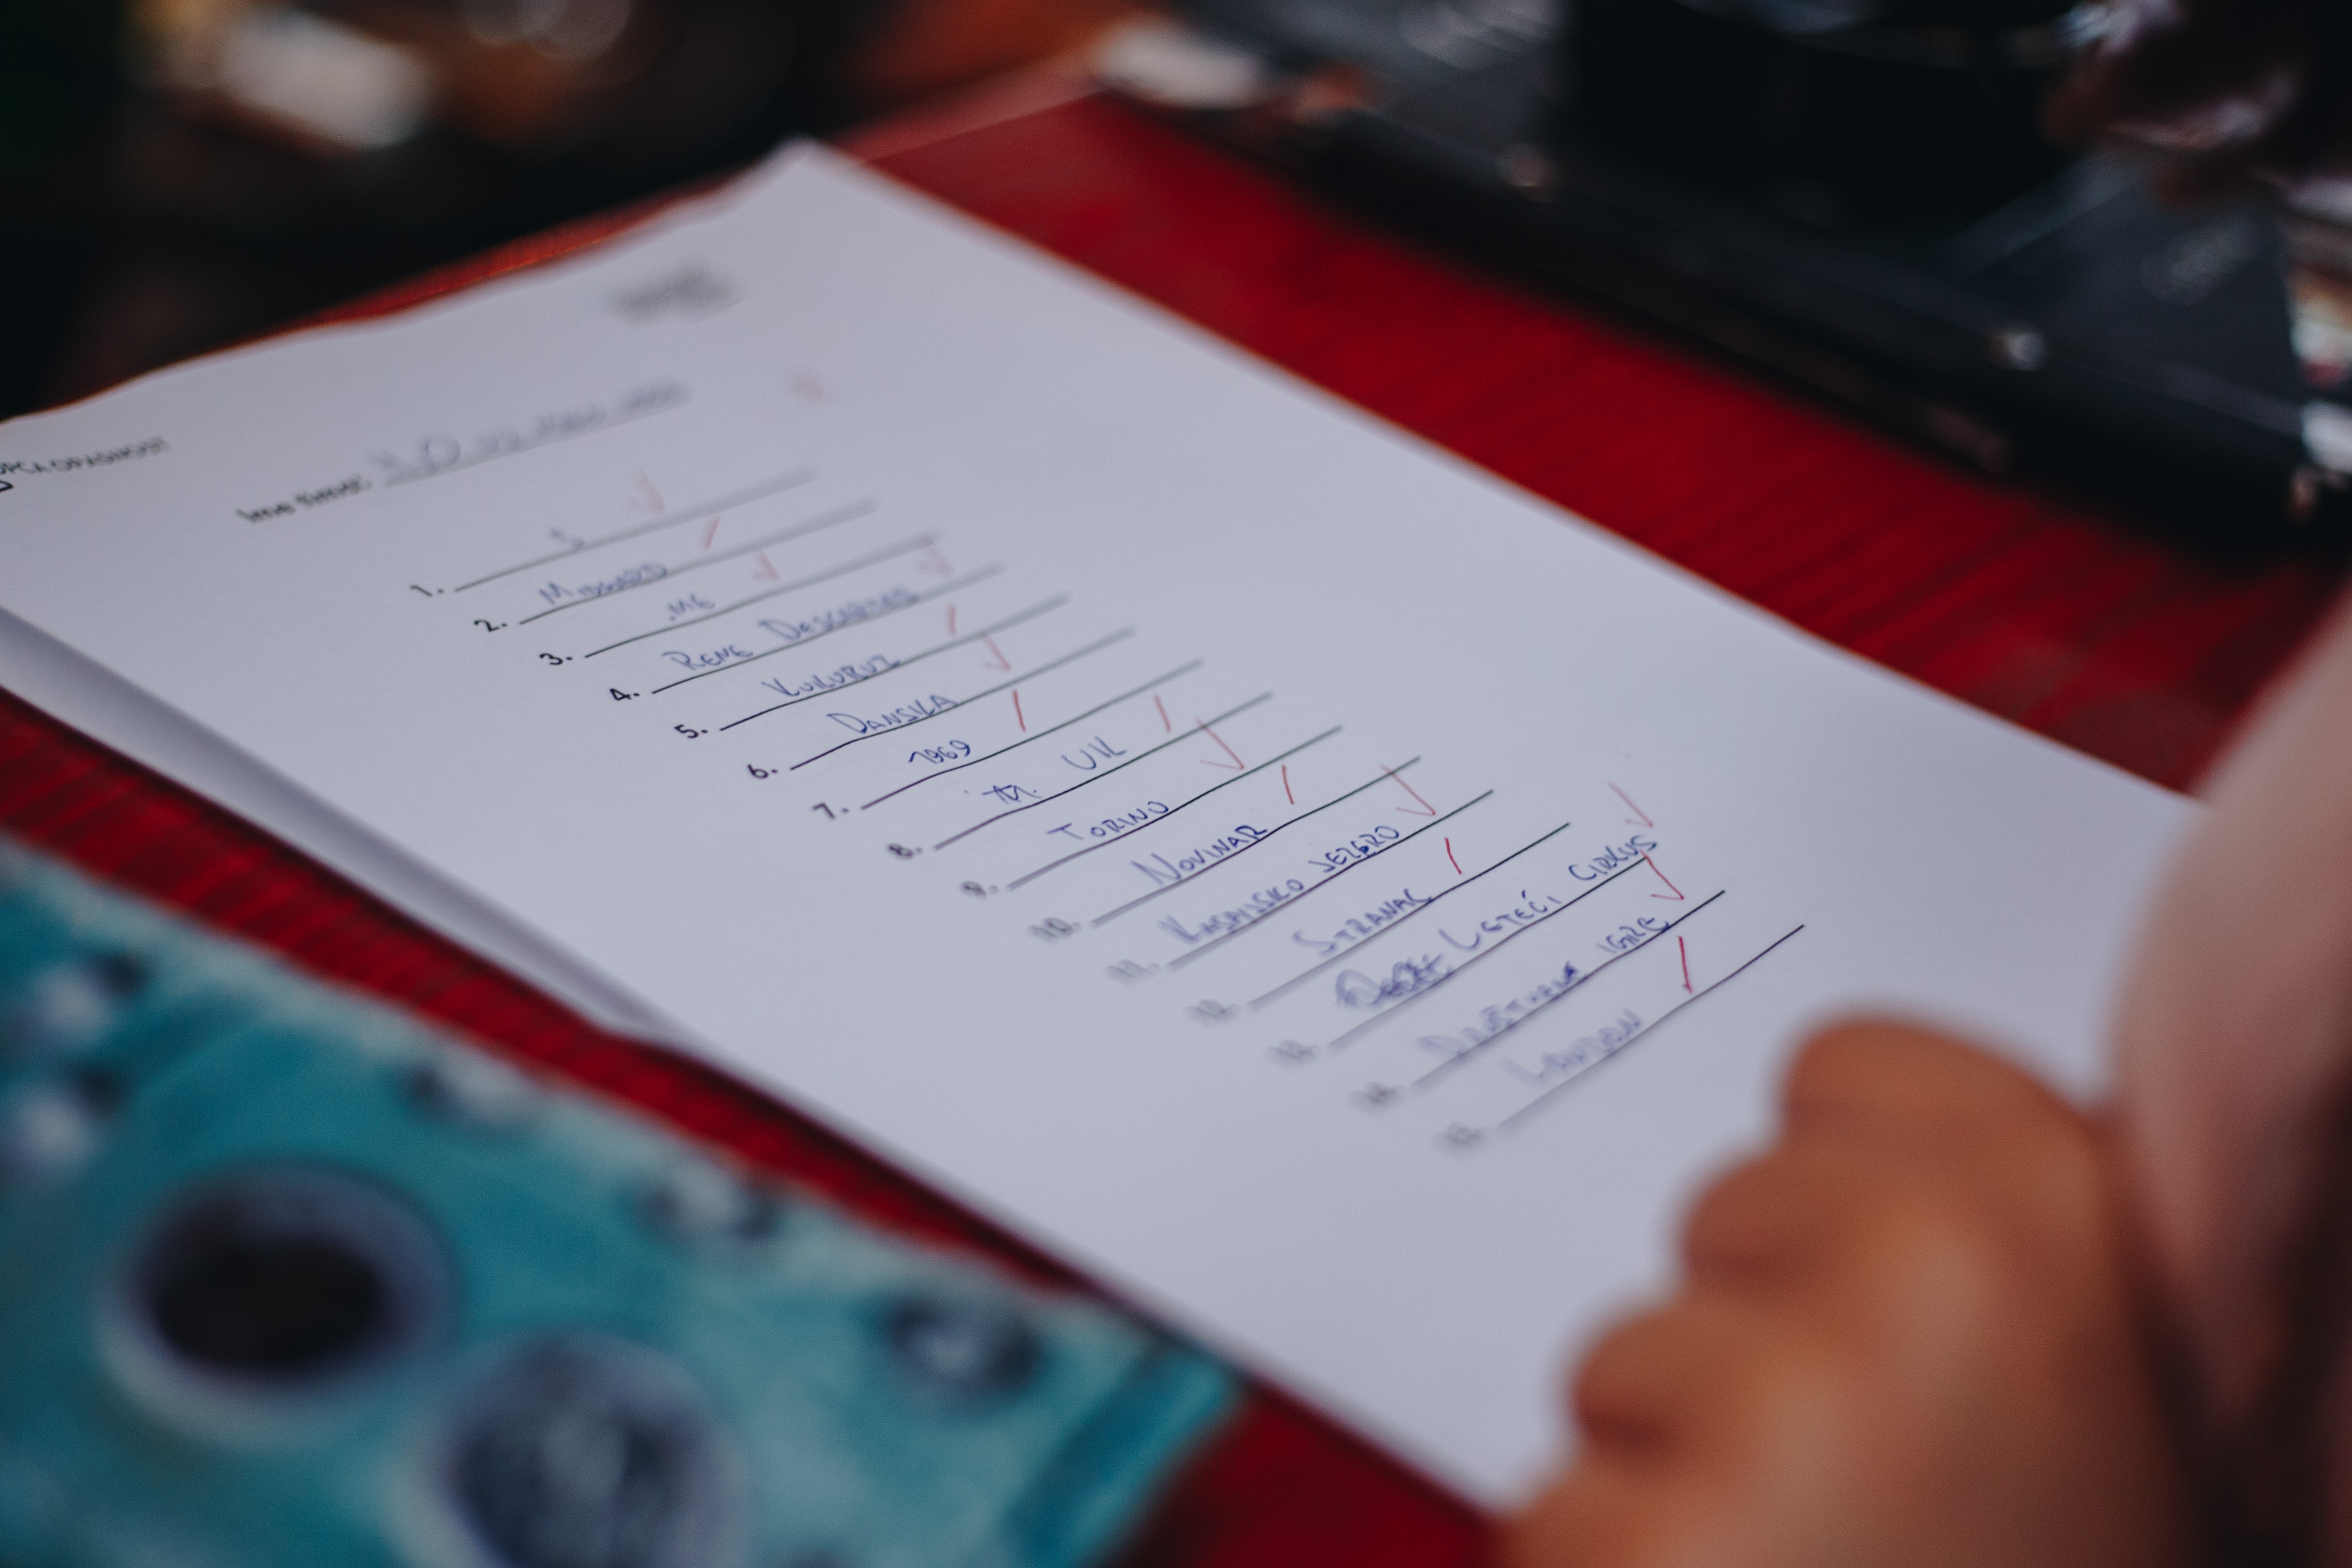 OPĆA OPASNOST
Ime tima:
1. 5
2. MIDGARD
3. .ME
4. RENE DESCARTES
5. KUKURUZ
6. DANSKA
7. 1969
8. UIL
9. TORINO
10. NOVINAR
11. KASPIJSKO JEZERO
12. STRANAC
13. LETEĆI CIRKUS
14. DRUŠTVENE IGRE
15. LONDON